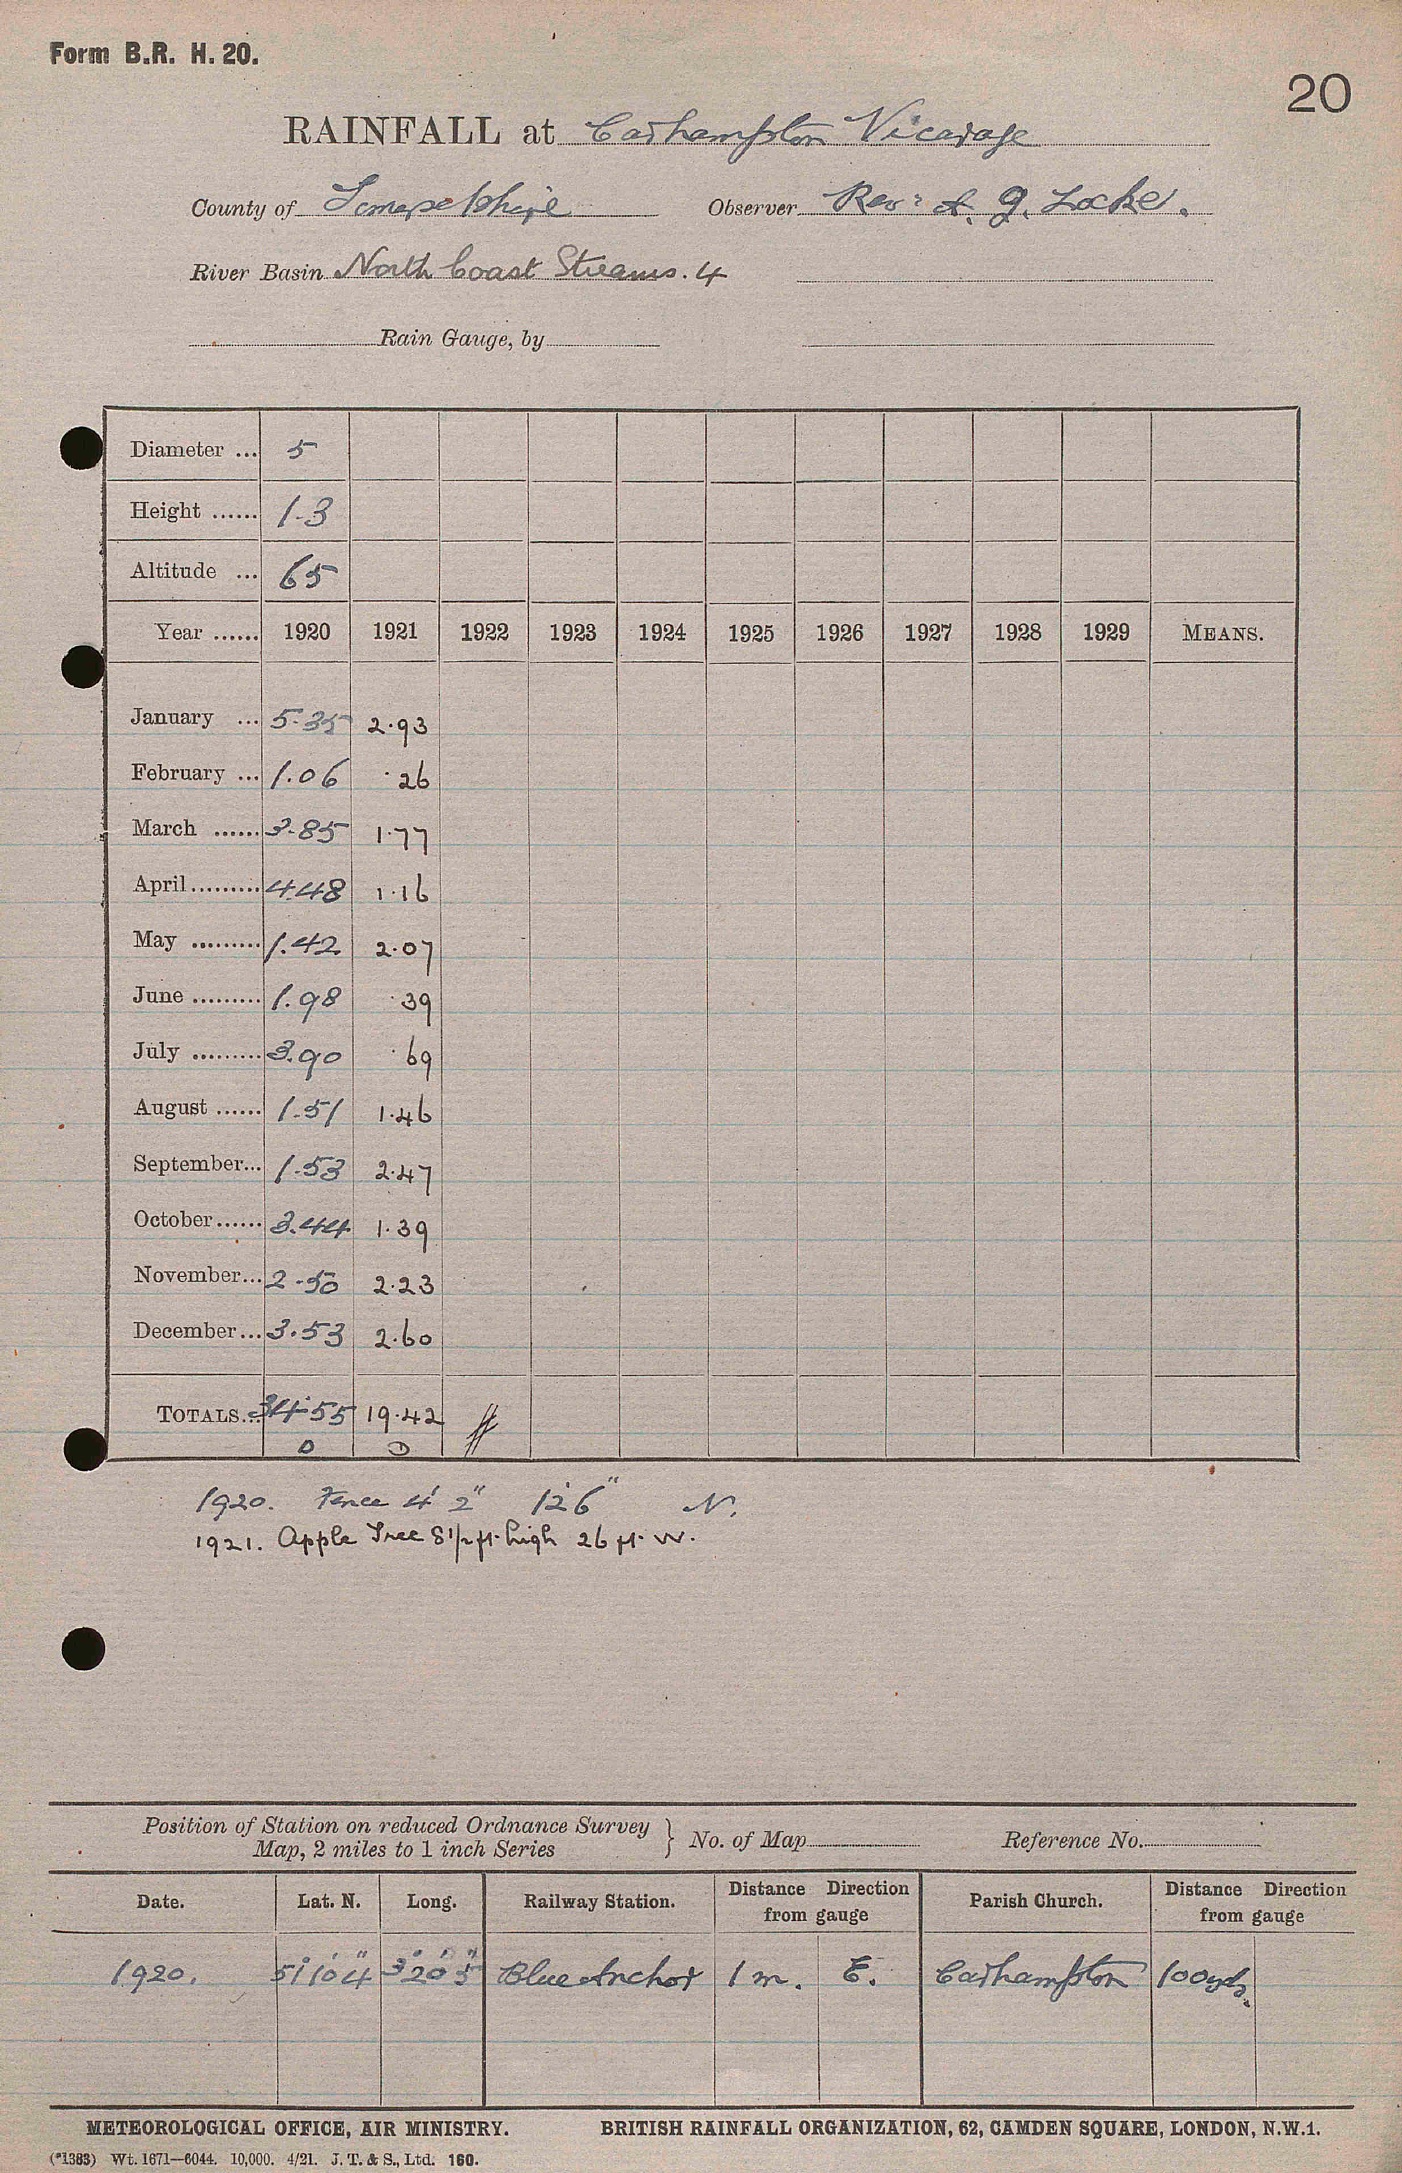 Form B.R. H. 20.
20
RAINFALL at Carhampton Vicarage
County of Somersetshire Observer Rev: A. G. Locke.
River Basin North Coast Streams. 4
Rain Gauge, by
Diameter ... 5
Height ...... 1-3
Altitude ... 65
Year ...... 1920 1921 1922 1923 1924 1925 1926 1927 1928 1929 MEANS.
January ... 5.35 2.93
February ... 1.06 .26
March ...... 3.85 1.77
April ......... 4.48 1.16
May ......... 1.42 2.07
June ......... 1.98 .39
July ......... 3.90 .69
August ...... 1.51 1.46
September... 1.53 2.47
October...... 3.44 1.39
November... 2.50 2.23
December... 3.53 2.60
TOTALS... 34.55 19.42
D D
1920. Fence 4' 2" 12' 6" N.
1921. Apple Tree 8 1/2 ft. high 26 ft. W.
Position of Station on reduced Ordnance Survey
Map, 2 miles to 1 inch Series } No. of Map Reference No.
Date. Lat. N. Long. Railway Station. Distance Direction from gauge Parish Church. Distance Direction from gauge
1920. 51° 10' 4" 3° 20' 5" Blue Anchor 1 m. E. Carhampton 100 yds.
METEOROLOGICAL OFFICE, AIR MINISTRY. BRITISH RAINFALL ORGANIZATION, 62, CAMDEN SQUARE, LONDON, N.W.1.
(*1383) Wt. 1671—6044. 10,000. 4/21. J. T. & S., Ltd. 160.